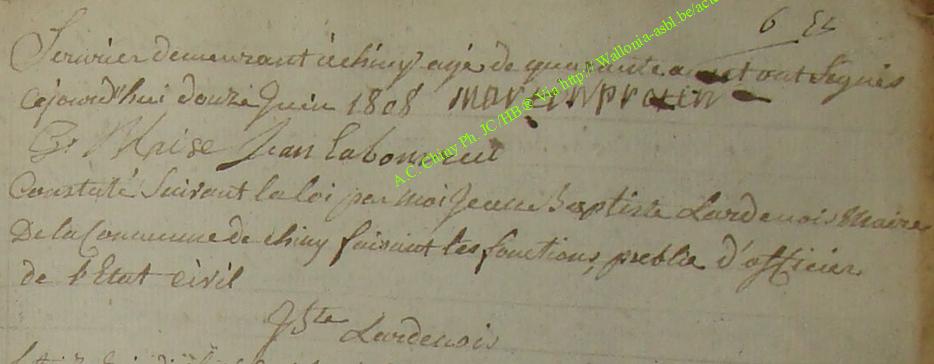 6
Serurier demeurant à chiny agé de quarante ans et ont Signés
cejourd'hui douze Juin 1808 martin protin
Jean Labonneut
Constaté Suivant la loi par moi Jean Baptiste Lardenois Maire
De la Commune de chiny faisant les fonctions, publie d'officier
de l'Etat civil
Jbte Lardenois
A.C. Chiny Ph. JC / HH & Via http:// Wallonia-asbl.be/acte